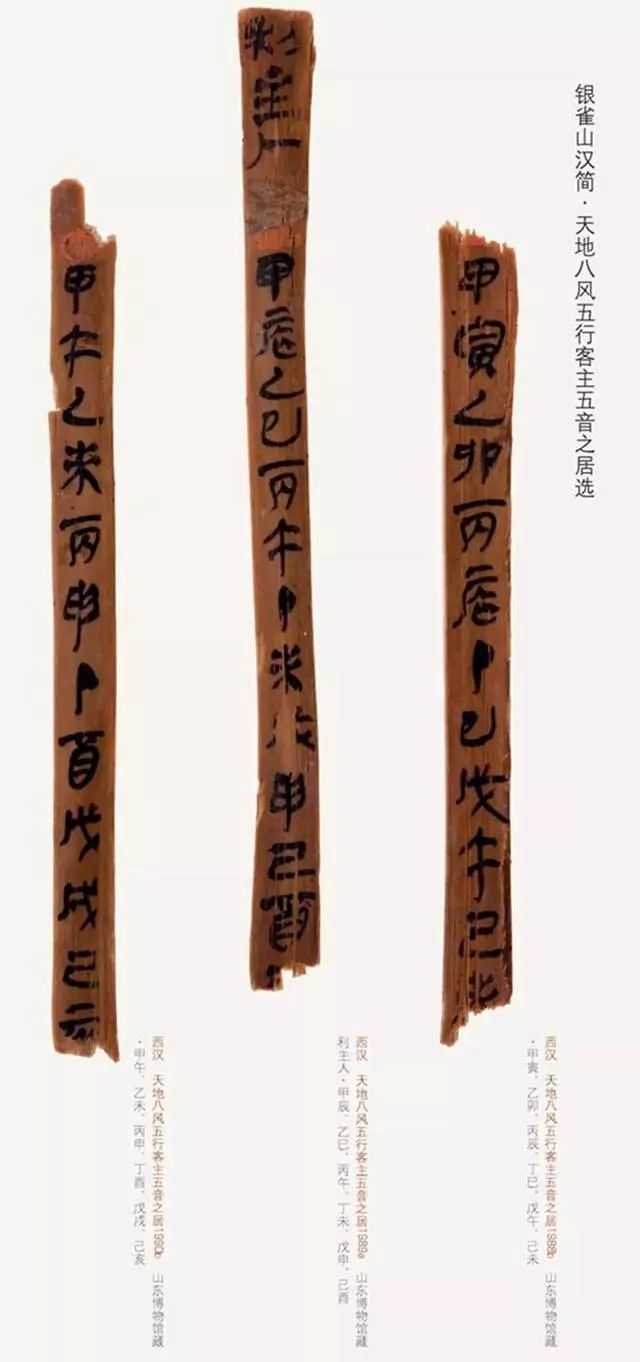 银雀山汉简·天地八风五行客主五音之居选
甲寅乙卯丙辰丁巳戊午己未
利主人
甲辰乙巳丙午丁未戊申己酉
甲午乙未丙申丁酉戊戌己亥
西汉 天地八风五行客主五音之居1988b 山东博物馆藏
·甲寅、乙卯、丙辰、丁巳、戊午、己未
西汉 天地八风五行客主五音之居1989a 山东博物馆藏
利主人·甲辰、乙巳、丙午、丁未、戊申、己酉
西汉 天地八风五行客主五音之居1980b 山东博物馆藏
·甲午、乙未、丙申、丁酉、戊戌、己亥